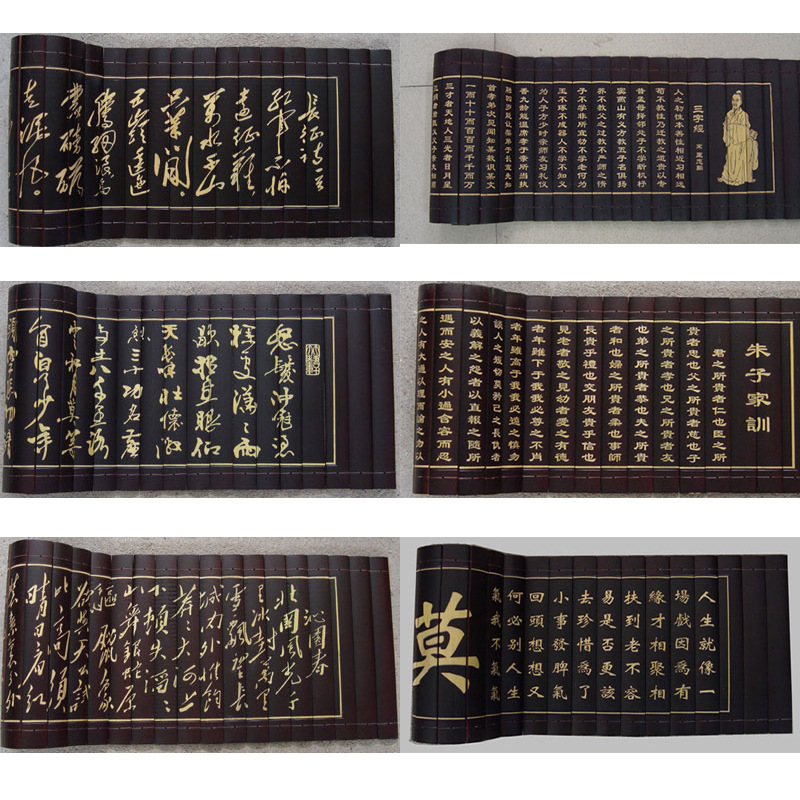 长征诗一首
红军不怕
远征难，
万水千山
只等闲。
五岭逶迤
腾细浪乌
蒙磅礴
走泥丸。
三字經
宋 王应麟
人之初性本善性相近习相远
苟不教性乃迁教之道贵以专
昔孟母择邻处子不学断机杼
窦燕山有义方教五子名俱扬
养不教父之过教不严师之惰
子不学非所宜幼不学老何为
玉不琢不成器人不学不知义
为人子方少时亲师友习礼仪
香九龄能温席孝于亲所当执
融四岁能让梨弟于长宜先知
首孝弟次见闻知某数识某文
一而十十而百百而千千而万
三才者天地人三光者日月星
怒髮冲冠凭
栏处潇潇雨
歇抬望眼仰
天长啸壮怀激
烈三十功名塵
与土八千里路
云和月莫等
闲白了少年
朱子家訓
君之所貴者仁也臣之所
貴者忠也父之所貴者慈也子
之所貴者孝也兄之所貴者友
也弟之所貴者恭也夫之所貴
者和也婦之所貴者柔也事師
長貴乎禮也交朋友貴乎信也
見老者敬之見幼者愛之有德
者年雖下于我我必尊之不肖
者年雖高于我我必遠之慎勿
談人之短切莫矜己之長仇者
以義解之怨者以直報之隨所
遇而安之人有小過含容而忍
之人有大過以理而諭之勿以
沁園春
北国风光千
里冰封万里
雪飘望长
城内外惟馀
莽莽大河上
下顿失滔滔
山舞银蛇原
驰蜡象
欲与天公试
比高须
晴日看红
装素裹分外
人生就像一
場戲因為有
緣才相聚相
扶到老不容
易是否更該
去珍惜為了
小事發脾氣
回頭想想又
何必別人生
氣我不氣氣
莫